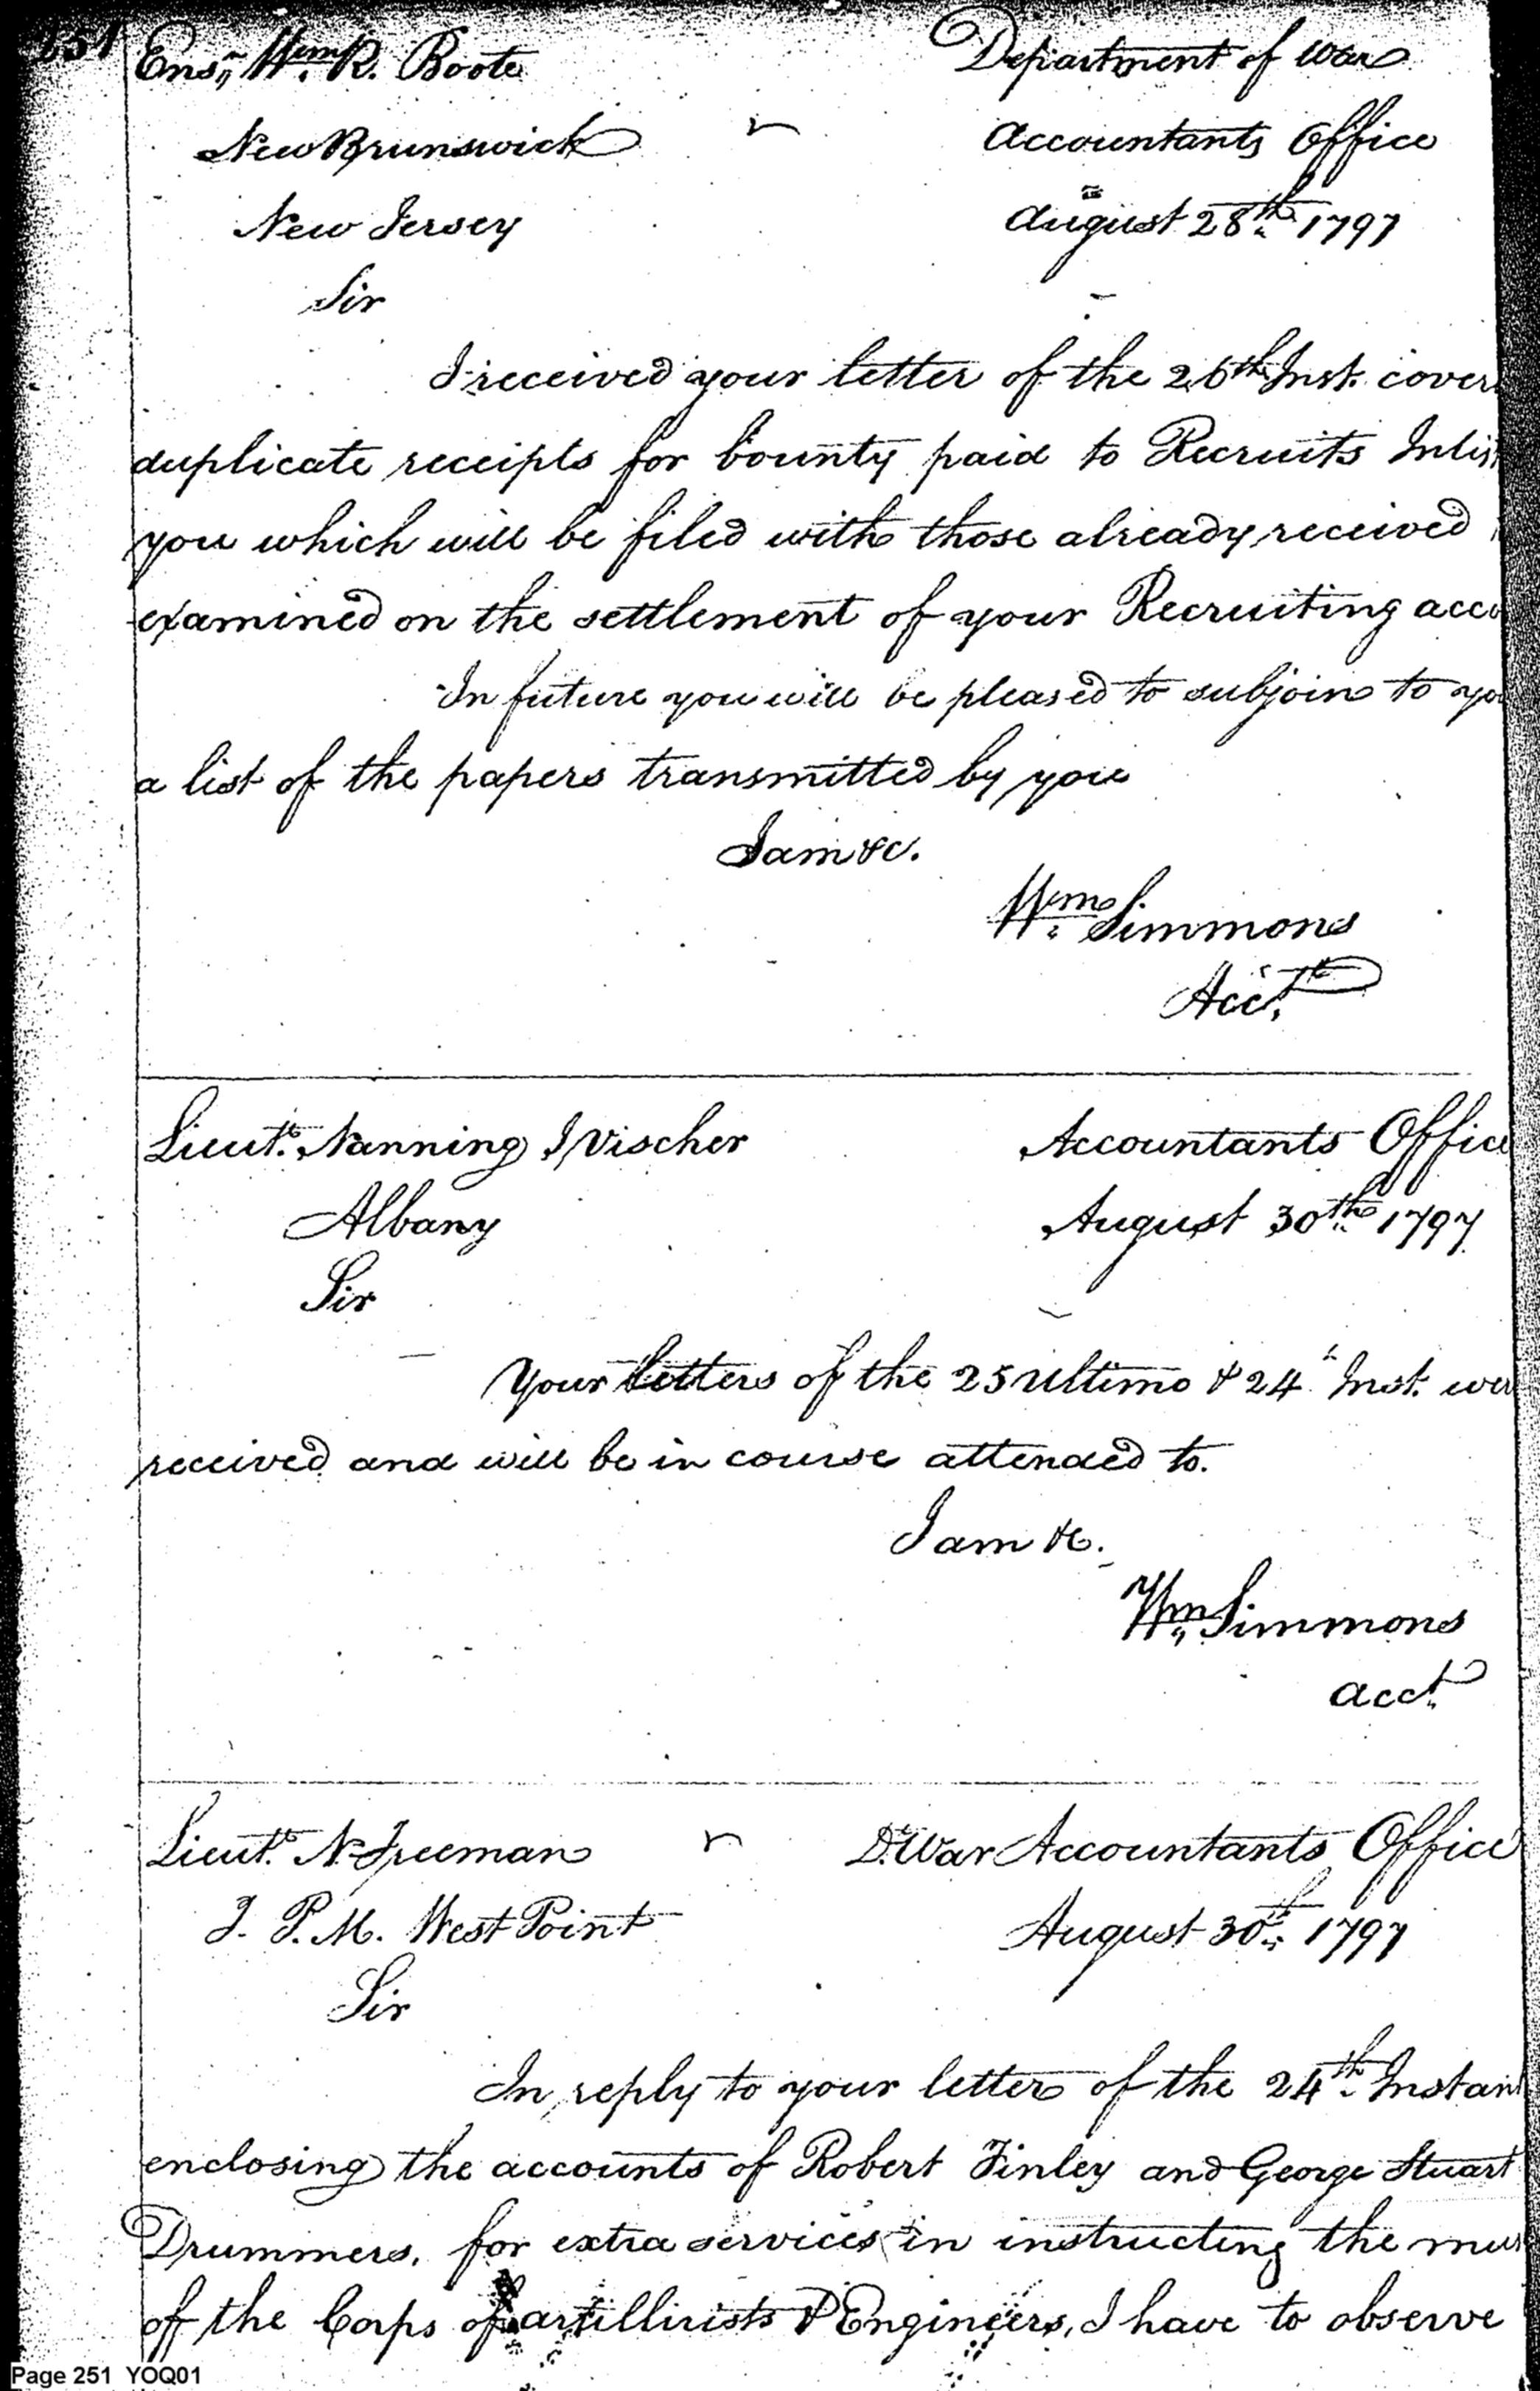 251
Ens,, Wm. R. Boote
Department of War
New Brunswick
Accountants Office
New Jersey
August 28th. 1797
Sir
I received your letter of the 26th Inst. cover
duplicate receipts for bounty paid to Recruits Inlis
you which will be filed with those already received
examined on the settlement of your Recruiting acco
In future you will be pleased to subjoin to yo
a list of the papers transmitted by you
I am &c.
Wm. Simmons
Acct.
Lieut. Nanning J Vischer
Accountants Office
Albany
August 30th. 1797
Sir
Your letters of the 25 Ultimo & 24 Inst. wer
received and will be in course attended to.
I am &c.
Wm,, Simmons
acct.
Lieut. N. Freeman
D. War Accountants Office
J. P. M. West Point
August 30th. 1797
Sir
In reply to your letter of the 24th. Instant
enclosing the accounts of Robert Finley and George Stuart
Drummers, for extra services in instructing the mus
of the Corps of artillirists & Engineers, I have to observe
Page 251 YOQ01